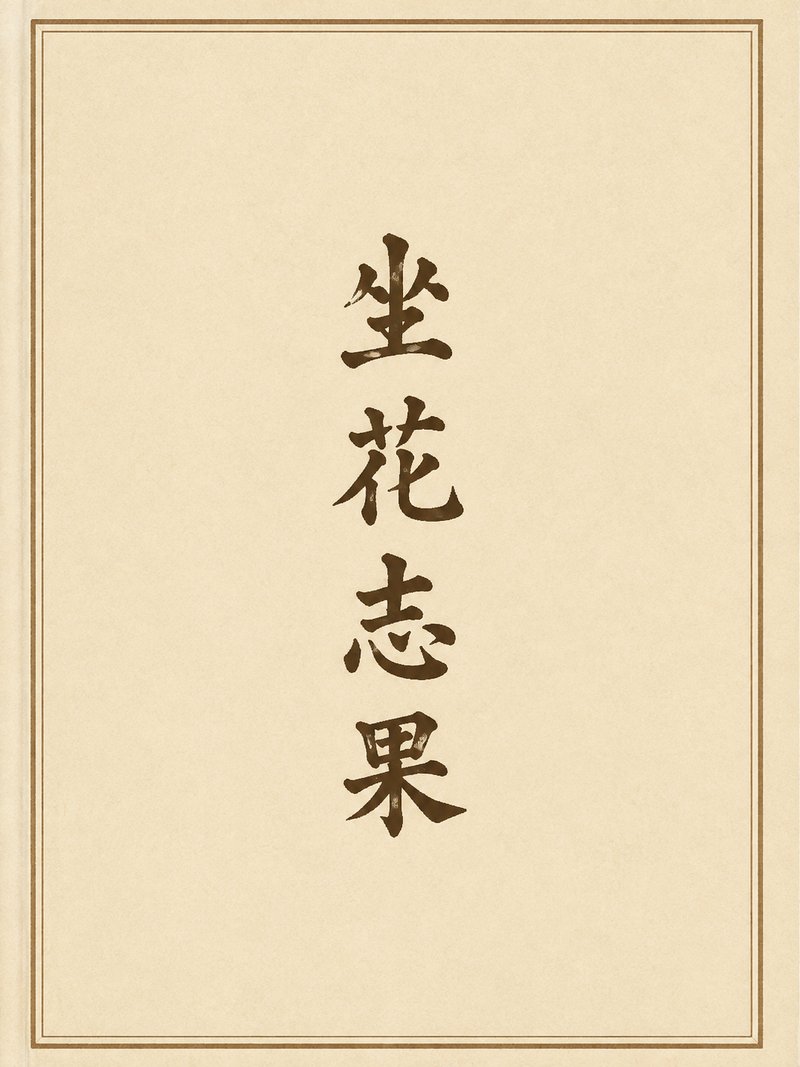 坐花志果